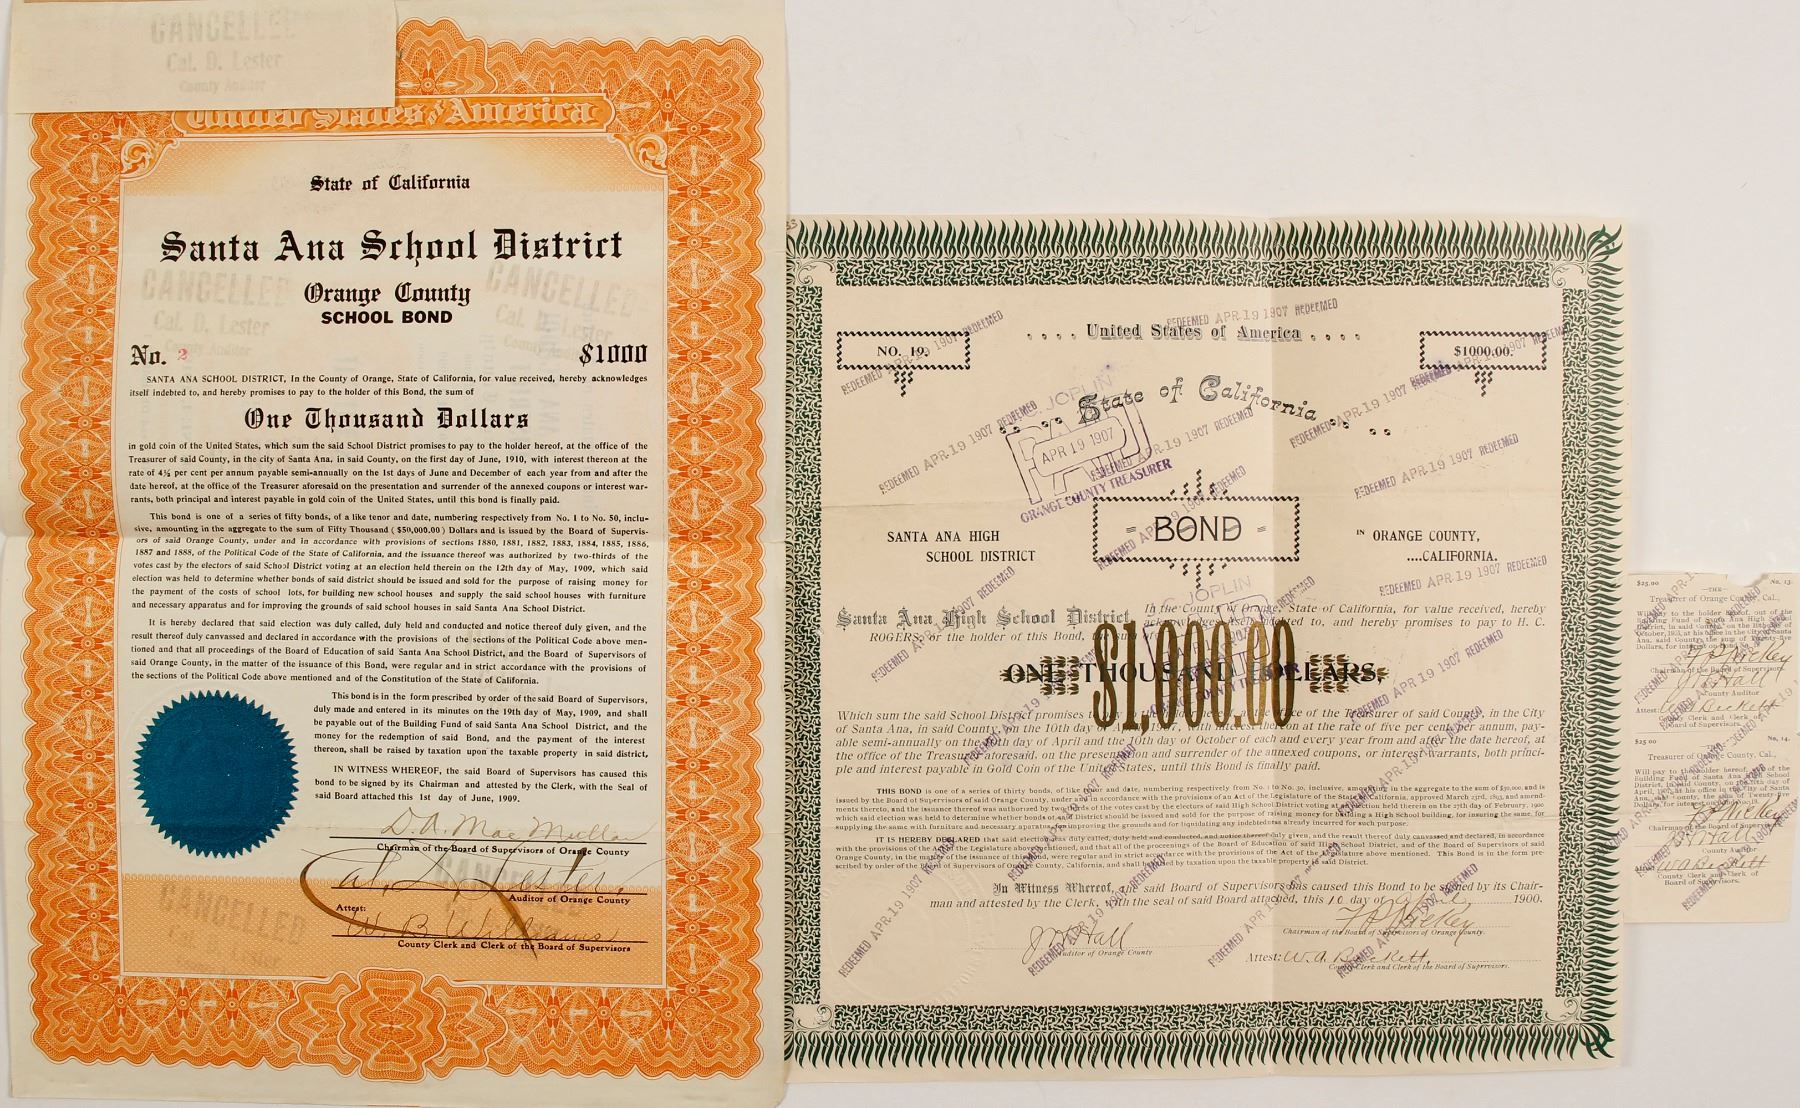 CANCELLED
Cal. D. Lester
County Auditor
United States of America
State of California
Santa Ana School District
CANCELLED
CANCELLED
Orange County
SCHOOL BOND
Cal. D. Lester
County Auditor
No. 2
$1000
SANTA ANA SCHOOL DISTRICT, In the County of Orange, State of California, for value received, hereby acknowledges
itself indebted to, and hereby promises to pay to the holder of this Bond, the sum of
One Thousand Dollars
in gold coin of the United States, which sum the said School District promises to pay to the holder hereof, at the office of the
Treasurer of said County, in the city of Santa Ana, in said County, on the first day of June, 1910, with interest thereon at the
rate of 4½ per cent per annum payable semi-annually on the 1st days of June and December of each year from and after the
date hereof, at the office of the Treasurer aforesaid on the presentation and surrender of the annexed coupons or interest war-
rants, both principal and interest payable in gold coin of the United States, until this bond is finally paid.
This bond is one of a series of fifty bonds, of a like tenor and date, numbering respectively from No. 1 to No. 50, inclu-
sive, amounting in the aggregate to the sum of Fifty Thousand ($50,000.00) Dollars and is issued by the Board of Supervis-
ors of said Orange County, under and in accordance with provisions of sections 1880, 1881, 1882, 1883, 1884, 1885, 1886,
1887 and 1888, of the Political Code of the State of California, and the issuance thereof was authorized by two-thirds of the
votes cast by the electors of said School District voting at an election held therein on the 12th day of May, 1909, which said
election was held to determine whether bonds of said district should be issued and sold for the purpose of raising money for
the payment of the costs of school lots, for building new school houses and supply the said school houses with furniture
and necessary apparatus and for improving the grounds of said school houses in said Santa Ana School District.
It is hereby declared that said election was duly called, duly held and conducted and notice thereof duly given, and the
result thereof duly canvassed and declared in accordance with the provisions of the sections of the Political Code above men-
tioned and that all proceedings of the Board of Education of said Santa Ana School District, and the Board of Supervisors of
said Orange County, in the matter of the issuance of this Bond, were regular and in strict accordance with the provisions of
the sections of the Political Code above mentioned and of the Constitution of the State of California.
This bond is in the form prescribed by order of the said Board of Supervisors,
duly made and entered in its minutes on the 19th day of May, 1909, and shall
be payable out of the Building Fund of said Santa Ana School District, and the
money for the redemption of said Bond, and the payment of the interest
thereon, shall be raised by taxation upon the taxable property in said district,
IN WITNESS WHEREOF, the said Board of Supervisors has caused this
bond to be signed by its Chairman and attested by the Clerk, with the Seal of
said Board attached this 1st day of June, 1909.
Chairman of the Board of Supervisors of Orange County
Cal. D. Lester.
Auditor of Orange County
Attest:
W. B. Williams
County Clerk and Clerk of the Board of Supervisors
CANCELLED
.... United States of America ....
NO. 19.
$1000.00.
State of California
PAID
APR 19 1907
C. JOPLIN
ORANGE COUNTY TREASURER
REDEEMED APR 19 1907 REDEEMED
SANTA ANA HIGH
SCHOOL DISTRICT
= BOND =
IN ORANGE COUNTY,
....CALIFORNIA.
Santa Ana High School District, In the County of Orange, State of California, for value received, hereby
acknowledges itself indebted to, and hereby promises to pay to H. C.
ROGERS, or the holder of this Bond, the sum of
ONE THOUSAND DOLLARS,
$1,000.00
Which sum the said School District promises to pay to the holder hereof, at the office of the Treasurer of said County, in the City
of Santa Ana, in said County, on the 10th day of April, 1907, with interest thereon at the rate of five per cent per annum, pay-
able semi-annually on the 10th day of April and the 10th day of October of each and every year from and after the date hereof, at
the office of the Treasurer aforesaid, on the presentation and surrender of the annexed coupons, or interest warrants, both princi-
ple and interest payable in Gold Coin of the United States, until this Bond is finally paid.
THIS BOND is one of a series of thirty bonds, of like tenor and date, numbering respectively from No. 1 to No. 30, inclusive, amounting in the aggregate to the sum of $30,000, and is
issued by the Board of Supervisors of said Orange County, under and in accordance with the provisions of an Act of the Legislature of the State of California, approved March 23rd, 1893, and amend-
ments thereto, and the issuance thereof was authorized by two-thirds of the votes cast by the electors of said High School District voting at an election held therein on the 27th day of February, 1900
which said election was held to determine whether bonds of said District should be issued and sold for the purpose of raising money for building a High School building, for insuring the same, for
supplying the same with furniture and necessary apparatus, for improving the grounds and for liquidating any indebtedness already incurred for such purpose.
IT IS HEREBY DECLARED that said election was duly called, duly held and conducted, and notice thereof duly given, and the result thereof duly canvassed and declared, in accordance
with the provisions of the Act of the Legislature above mentioned, and that all of the proceedings of the Board of Education of said Santa Ana High School District, and of the Board of Supervisors of said
Orange County, in the matter of the issuance of this Bond, were regular and in strict accordance with the provisions of the Act of the Legislature above mentioned. This Bond is in the form pre-
scribed by order of the said Board of Supervisors of Orange County, California, and shall be paid by taxation upon the taxable property in said District.
In Witness Whereof, the said Board of Supervisors has caused this Bond to be signed by its Chair-
man and attested by the Clerk, with the seal of said Board attached, this 10 day of April 1900.
Chairman of the Board of Supervisors of Orange County.
Auditor of Orange County
Attest: W. A. Beckett,
County Clerk and Clerk of the Board of Supervisors.
$25.00
No. 13.
THE
Treasurer of Orange County, Cal.,
Chairman of the Board of Supervisors
County Auditor
Attest: W A Beckett
County Clerk and Clerk of
Board of Supervisors.
$25 00
No. 14.
Treasurer of Orange County, Cal.,
Chairman of the Board of Supervisors
County Auditor
W A Beckett
County Clerk and Clerk of
Board of Supervisors.